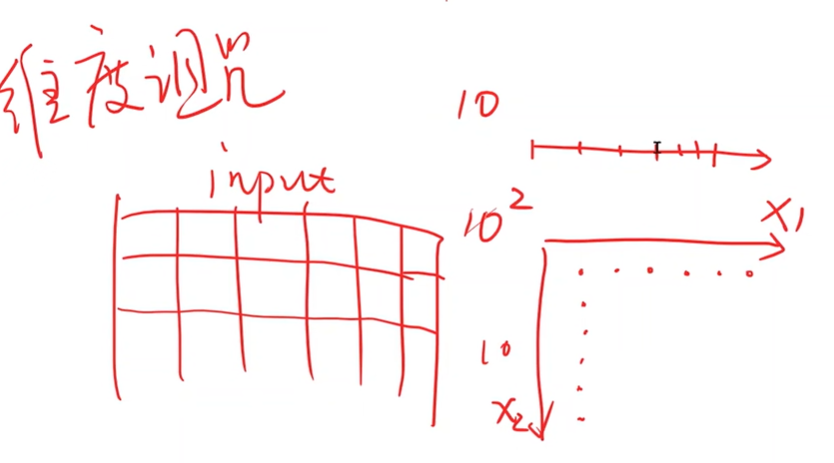 维度诅咒
input
10
10²
X₁
10
X₂